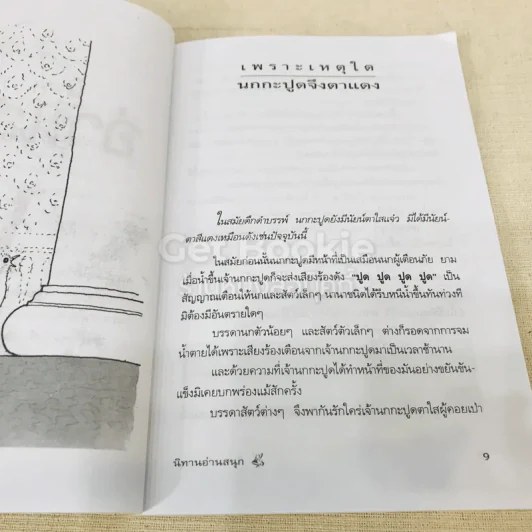 เพราะเหตุใด
นกกะปูดจึงตาแดง
ในสมัยดึกดำบรรพ์ นกกะปูดยังมีนัยน์ตาใสแจ๋ว มิได้มีนัยน์-
ตาสีแดงเหมือนดังเช่นปัจจุบันนี้
ในสมัยก่อนนั้นนกกะปูดมีหน้าที่เป็นเสมือนนกผู้เตือนภัย ยาม
เมื่อน้ำขึ้นเจ้านกกะปูดก็จะส่งเสียงร้องดัง "ปูด ปูด ปูด ปูด" เป็น
สัญญาณเตือนให้นกและสัตว์เล็กๆ นานาชนิดได้รีบหนีน้ำขึ้นทันท่วงที
มิต้องมีอันตรายใดๆ
บรรดานกตัวน้อยๆ และสัตว์ตัวเล็กๆ ต่างก็รอดจากการจม
น้ำตายได้เพราะเสียงร้องเตือนจากเจ้านกกะปูดมาเป็นเวลาช้านาน
และด้วยความที่เจ้านกกะปูดได้ทำหน้าที่ของมันอย่างขยันขัน-
แข็งมิเคยบกพร่องแม้สักครั้ง
บรรดาสัตว์ต่างๆ จึงพากันรักใคร่เจ้านกกะปูดตาใสผู้คอยเฝ้า
นิทานอ่านสนุก 9